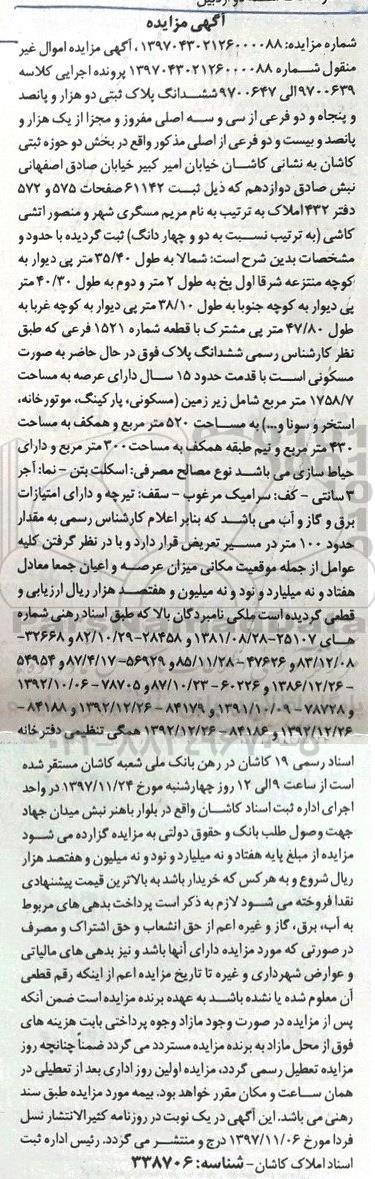 آگهی مزایده
شماره مزایده: ۱۳۹۷۰۴۳۰۲۱۲۶۰۰۰۰۸۸، آگهی مزایده اموال غیر
منقول شماره ۱۳۹۷۰۴۳۰۲۱۲۶۰۰۰۰۸۸ پرونده اجرایی کلاسه
۹۷۰۰۶۳۹ الی ۹۷۰۰۶۴۷ ششدانگ پلاک ثبتی دو هزار و پانصد
و پنجاه و دو فرعی از سی و سه اصلی مفروز و مجزا از یک هزار و
پانصد و بیست و دو فرعی از اصلی مذکور واقع در بخش دو حوزه ثبتی
کاشان به نشانی کاشان خیابان امیر کبیر خیابان صادق اصفهانی
نبش صادق دوازدهم که ذیل ثبت ۶۱۱۴۲ صفحات ۵۷۵ و ۵۷۲
دفتر ۴۳۲ املاک به ترتیب به نام مریم مسگری شهر و منصور اتشی
کاشی (به ترتیب نسبت به دو و چهار دانگ) ثبت گردیده با حدود و
مشخصات بدین شرح است: شمالا به طول ۳۵/۴۰ متر پی دیوار به
کوچه منتزعه شرقا اول پخ به طول ۲ متر و دوم به طول ۴۰/۳۰ متر
پی دیوار به کوچه جنوبا به طول ۳۸/۱۰ متر پی دیوار به کوچه غربا به
طول ۴۷/۸۰ متر پی مشترک با قطعه شماره ۱۵۲۱ فرعی که طبق
نظر کارشناس رسمی ششدانگ پلاک فوق در حال حاضر به صورت
مسکونی است با قدمت حدود ۱۵ سال دارای عرصه به مساحت
۱۷۵۸/۷ متر مربع شامل زیر زمین (مسکونی، پارکینگ، موتورخانه،
استخر و سونا و...) به مساحت ۵۲۰ متر مربع و همکف به مساحت
۴۳۰ متر مربع و نیم طبقه همکف به مساحت ۳۰۰ متر مربع و دارای
حیاط سازی می باشد نوع مصالح مصرفی: اسکلت بتن - نما: آجر
۳ سانتی - کف: سرامیک مرغوب - سقف: تیرچه و دارای امتیازات
برق و گاز و آب می باشد که بنابر اعلام کارشناس رسمی به مقدار
حدود ۱۰۰ متر در مسیر تعریض قرار دارد و با در نظر گرفتن کلیه
عوامل از جمله موقعیت مکانی میزان عرصه و اعیان جمعا معادل
هفتاد و نه میلیارد و نود و نه میلیون و هفتصد هزار ریال ارزیابی و
قطعی گردیده است ملکی نامبردگان بالا که طبق اسناد رهنی شماره
های ۲۵۱۰۷-۱۳۸۱/۰۸/۲۸ و ۲۸۴۵۸-۸۲/۱۰/۲۹ و ۳۲۶۶۸-
۸۳/۱۲/۰۸ و ۴۷۶۲۶-۸۵/۱۱/۲۸ و ۵۶۹۲۹-۸۷/۴/۱۷ و ۵۴۹۵۴
- ۱۳۸۶/۱۲/۲۶ و ۶۰۲۲۶-۸۷/۱۰/۲۳ و ۷۸۷۰۵-۱۳۹۲/۱۰/۰۶
و ۷۸۷۲۸-۱۳۹۱/۱۰/۰۹ و ۸۴۱۷۹-۱۳۹۲/۱۲/۲۶ و ۸۴۱۸۸-
۱۳۹۲/۱۲/۲۶ و ۸۴۱۸۶-۱۳۹۲/۱۲/۲۶ همگی تنظیمی دفترخانه
اسناد رسمی ۱۹ کاشان در رهن بانک ملی شعبه کاشان مستقر شده
است از ساعت ۹ الی ۱۲ روز چهارشنبه مورخ ۱۳۹۷/۱۱/۲۴ در واحد
اجرای اداره ثبت اسناد کاشان واقع در بلوار باهنر نبش میدان جهاد
جهت وصول طلب بانک و حقوق دولتی به مزایده گزارده می شود
مزایده از مبلغ پایه هفتاد و نه میلیارد و نود و نه میلیون و هفتصد هزار
ریال شروع و به هر کس که خریدار باشد به بالاترین قیمت پیشنهادی
نقدا فروخته می شود لازم به ذکر است پرداخت بدهی های مربوط
به آب، برق، گاز و غیره اعم از حق انشعاب و حق اشتراک و مصرف
در صورتی که مورد مزایده دارای آنها باشد و نیز بدهی های مالیاتی
و عوارض شهرداری و غیره تا تاریخ مزایده اعم از اینکه رقم قطعی
آن معلوم شده یا نشده باشد به عهده برنده مزایده است ضمن آنکه
پس از مزایده در صورت وجود مازاد وجوه پرداختی بابت هزینه های
فوق از محل مازاد به برنده مزایده مسترد می گردد ضمناً چنانچه روز
مزایده تعطیل رسمی گردد، مزایده اولین روز اداری بعد از تعطیلی در
همان ساعت و مکان مقرر خواهد بود. بیمه مورد مزایده طبق سند
رهنی می باشد. این آگهی در یک نوبت در روزنامه کثیرالانتشار نسل
فردا مورخ ۱۳۹۷/۱۱/۰۶ درج و منتشر می گردد. رئیس اداره ثبت
اسناد املاک کاشان - شناسه: ۳۳۸۷۰۶